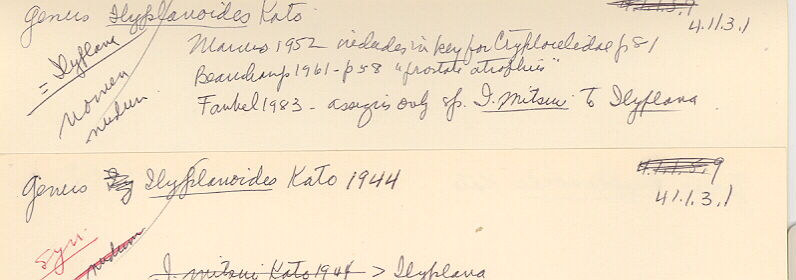 Genus Ilyplanoides Kato
4.1.1.5.9
4.11.3.1
= Ilyplana
nomen
nudum.
Marcus 1952 includes in key for Cryptocelidae p81
Beauchamp 1961 - p58 "prostate atrophies"
Faubel 1983 - assigns only sp. I. mitsui to Ilyplana
Genus Ilyplanoides Kato 1944
4.1.1.5.9
41.1.3.1
Syn.
nudum
I. mitsui Kato 1944 > Ilyplana